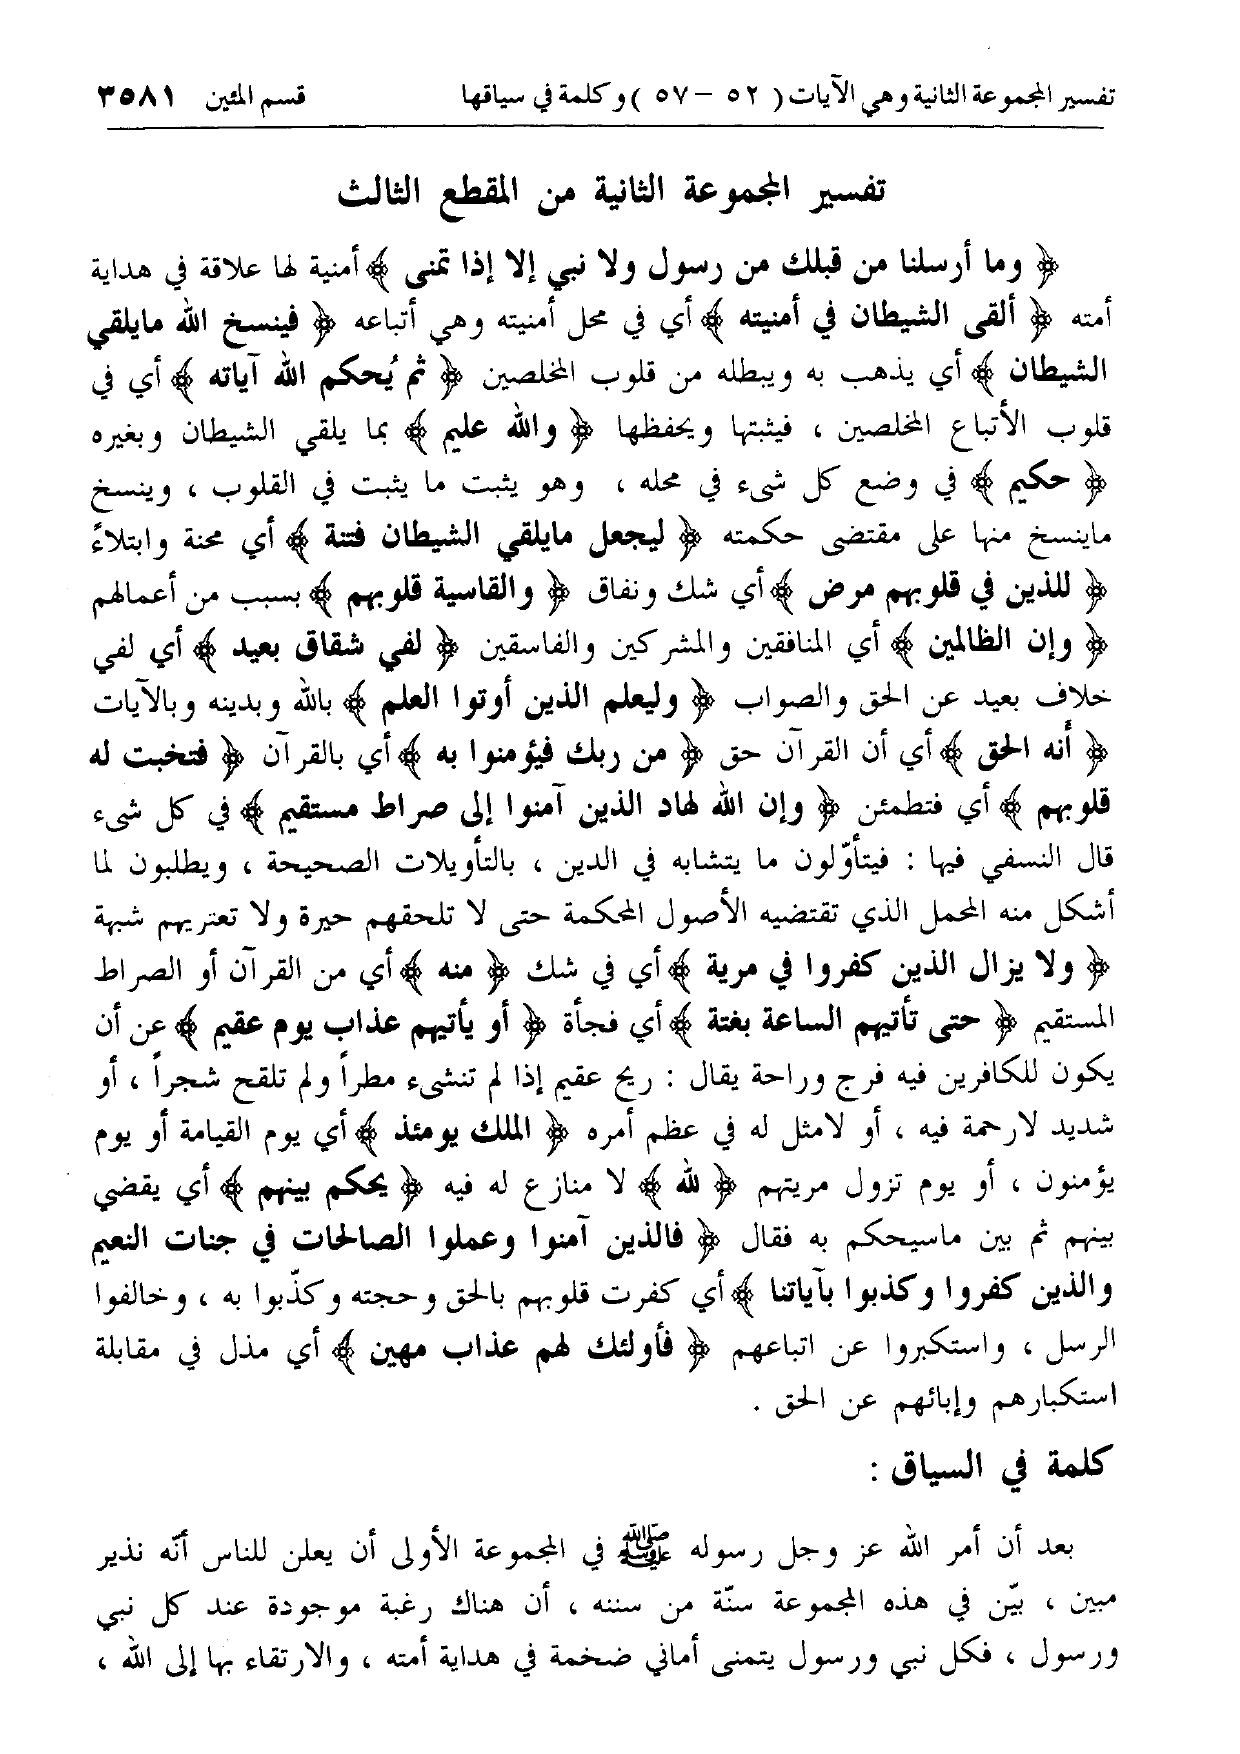 تفسير المجموعة الثانية وهي الآيات ( ٥٢ – ٥٧ ) وكلمة في سياقها قسم المئين ٣٥٨١
تفسير المجموعة الثانية من المقطع الثالث
﴿ وما أرسلنا من قبلك من رسول ولا نبي إلا إذا تمنى ﴾ أمنية لها علاقة في هداية
أمته ﴿ ألقى الشيطان في أمنيته ﴾ أي في محل أمنيته وهي أتباعه ﴿ فينسخ الله مايلقي
الشيطان ﴾ أي يذهب به ويبطله من قلوب المخلصين ﴿ ثم يُحكم الله آياته ﴾ أي في
قلوب الأتباع المخلصين ، فيثبتها ويحفظها ﴿ والله عليم ﴾ بما يلقي الشيطان وبغيره
﴿ حكيم ﴾ في وضع كل شىء في محله ، وهو يثبت ما يثبت في القلوب ، وينسخ
ماينسخ منها على مقتضى حكمته ﴿ ليجعل مايلقي الشيطان فتنة ﴾ أي محنة وابتلاءً
﴿ للذين في قلوبهم مرض ﴾ أي شك ونفاق ﴿ والقاسية قلوبهم ﴾ بسبب من أعمالهم
﴿ وإن الظالمين ﴾ أي المنافقين والمشركين والفاسقين ﴿ لفي شقاق بعيد ﴾ أي لفي
خلاف بعيد عن الحق والصواب ﴿ وليعلم الذين أوتوا العلم ﴾ بالله وبدينه وبالآيات
﴿ أنه الحق ﴾ أي أن القرآن حق ﴿ من ربك فيؤمنوا به ﴾ أي بالقرآن ﴿ فتخبت له
قلوبهم ﴾ أي فتطمئن ﴿ وإن الله لهاد الذين آمنوا إلى صراط مستقيم ﴾ في كل شىء
قال النسفي فيها : فيتأوّلون ما يتشابه في الدين ، بالتأويلات الصحيحة ، ويطلبون لما
أشكل منه المحمل الذي تقتضيه الأصول المحكمة حتى لا تلحقهم حيرة ولا تعتريهم شبهة
﴿ ولا يزال الذين كفروا في مرية ﴾ أي في شك ﴿ منه ﴾ أي من القرآن أو الصراط
المستقيم ﴿ حتى تأتيهم الساعة بغتة ﴾ أي فجأة ﴿ أو يأتيهم عذاب يوم عقيم ﴾ عن أن
يكون للكافرين فيه فرج وراحة يقال : ريح عقيم إذا لم تنشىء مطراً ولم تلقح شجراً ، أو
شديد لارحمة فيه ، أو لامثل له في عظم أمره ﴿ الملك يومئذ ﴾ أي يوم القيامة أو يوم
يؤمنون ، أو يوم تزول مريتهم ﴿ لله ﴾ لا منازع له فيه ﴿ يحكم بينهم ﴾ أي يقضي
بينهم ثم بين ماسيحكم به فقال ﴿ فالذين آمنوا وعملوا الصالحات في جنات النعيم
والذين كفروا وكذبوا بآياتنا ﴾ أي كفرت قلوبهم بالحق وحجته وكذّبوا به ، وخالفوا
الرسل ، واستكبروا عن اتباعهم ﴿ فأولئك لهم عذاب مهين ﴾ أي مذل في مقابلة
استكبارهم وإبائهم عن الحق .
كلمة في السياق :
بعد أن أمر الله عز وجل رسوله ﷺ في المجموعة الأولى أن يعلن للناس أنّه نذير
مبين ، بيّن في هذه المجموعة سنّة من سننه ، أن هناك رغبة موجودة عند كل نبي
ورسول ، فكل نبي ورسول يتمنى أماني ضخمة في هداية أمته ، والارتقاء بها إلى الله ،